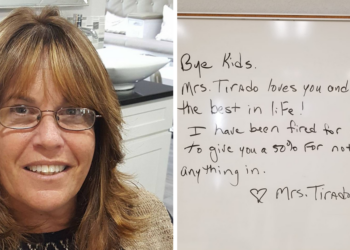 Bye Kids.
Mrs. Tirado loves you and
the best in life!
I have been fired for
to give you a 50% for not
anything in.
♡ Mrs. Tirado